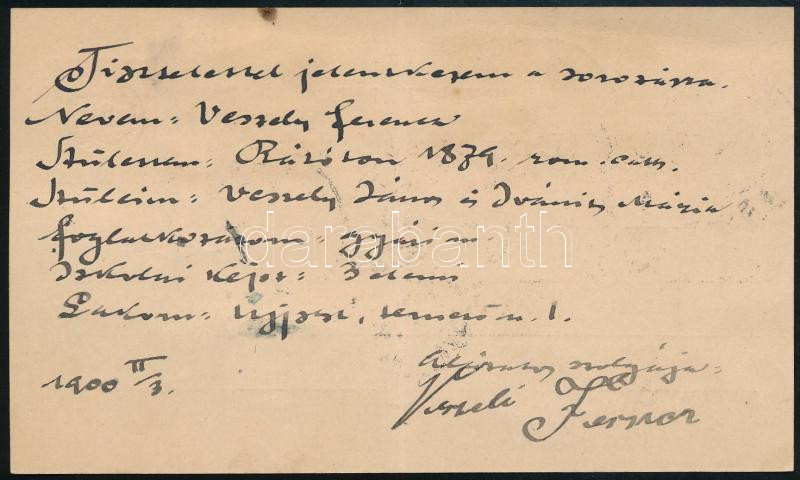 Tisztelettel jelentkezem a sorozásra.
Nevem: Vessely Ferencz
Születtem: Rákóson 1879. rom. cath.
Szüleim: Vessely János és Ivánits Mária
foglalkozásom: gyári m.
Iskolai képz: 3 elemi
Lakom: Ujpest, temető u. 1.
1900 II/3.
Alázatos szolgája:
Vesseli Ferencz
darabanth